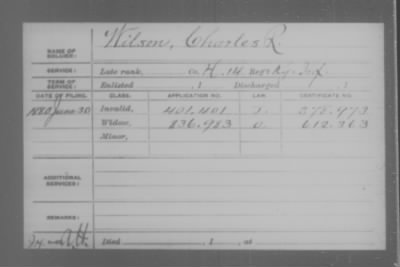 NAME OF SOLDIER: Wilson, Charles R.
SERVICE: Late rank, Co. H. 14 Reg't Ky. Inf.
TERM OF SERVICE: Enlisted , 1 Discharged , 1
DATE OF FILING. CLASS. APPLICATION NO. LAW. CERTIFICATE NO.
1880 June 30 Invalid, 401.401 278.473
Widow, 836.983 612.363
Minor,
ADDITIONAL SERVICES:
REMARKS:
Died , 1 , at